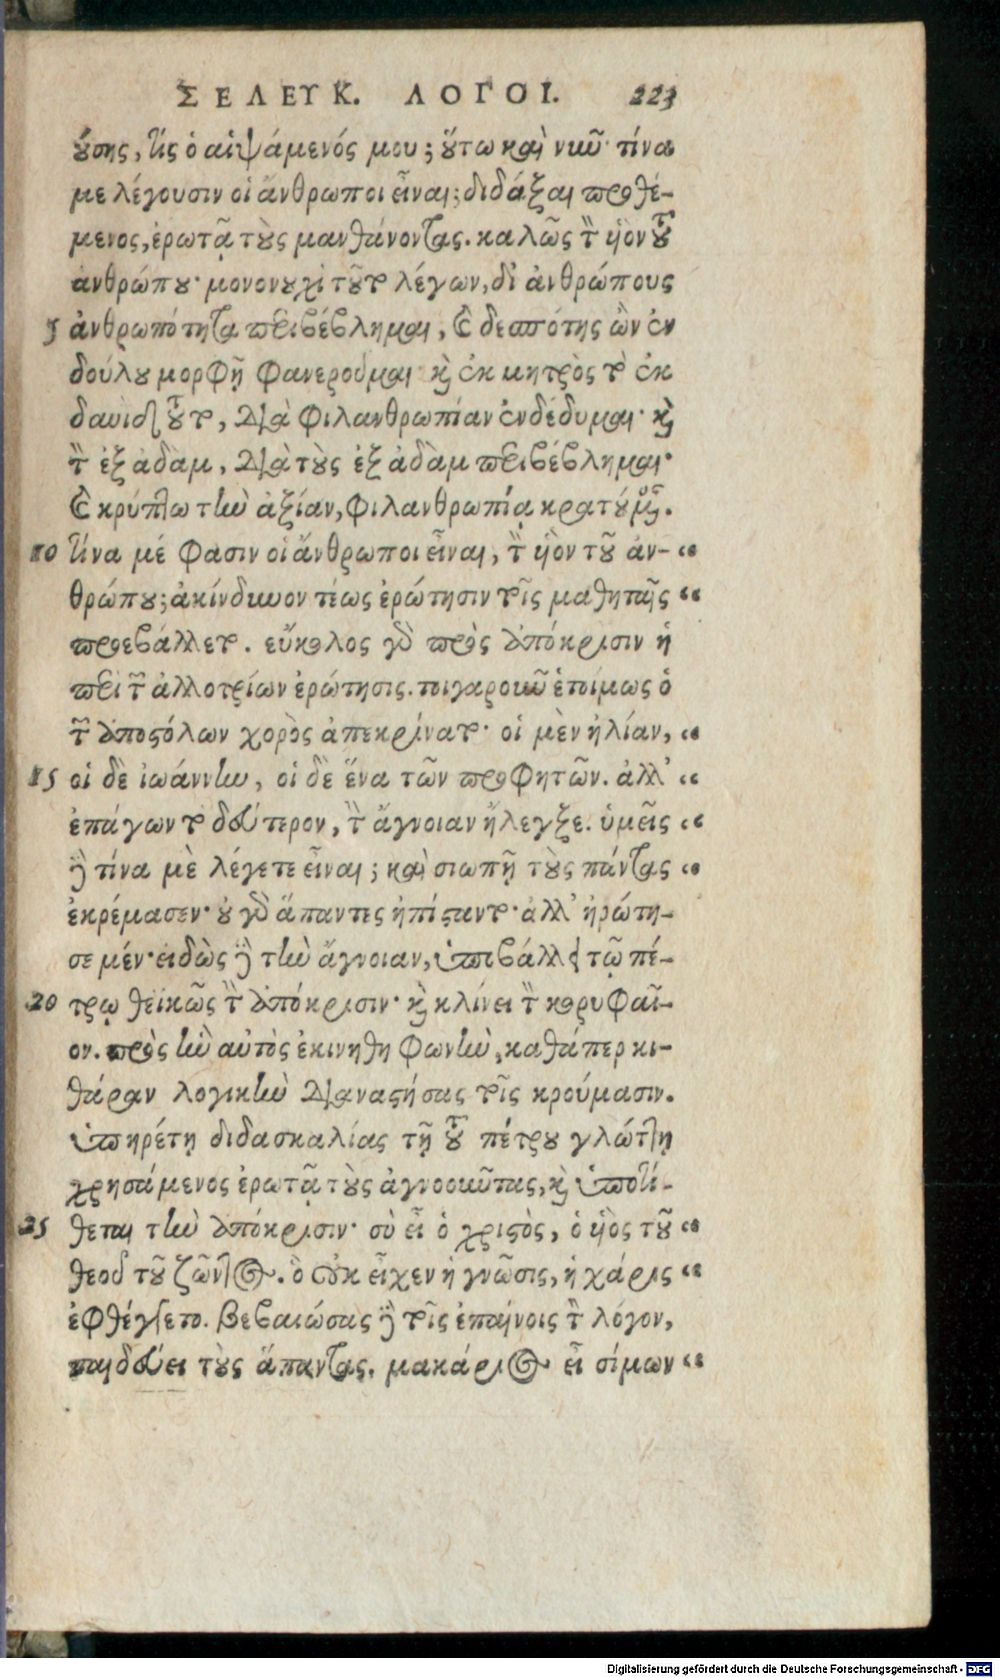 ΣΕΛΕΥΚ. ΛΟΓΟΙ. 223
ούσης, τίς ὁ ἁψάμενός μου; οὕτω καὶ νῦν· τίνα
με λέγουσιν οἱ ἄνθρωποι εἶναι; διδάξαι προθέ-
μενος, ἐρωτᾷ τοὺς μανθάνοντας. καλῶς τὸν υἱὸν τοῦ
ἀνθρώπου· μονονουχὶ τοῦτο λέγων, δι᾽ ἀνθρώπους
5 ἀνθρωπότητα περιβέβλημαι, καὶ δεσπότης ὢν ἐν
δούλου μορφῇ φανεροῦμαι· καὶ ἐκ μητρὸς τὸ ἐκ
δαυὶδ τοῦτο, διὰ φιλανθρωπίαν ἐνδέδυμαι· καὶ
τὸν ἐξ ἀδὰμ, διὰ τοὺς ἐξ ἀδὰμ περιβέβλημαι·
καὶ κρύπτω τὴν ἀξίαν, φιλανθρωπίᾳ κρατούμενος.
10 τίνα μέ φασιν οἱ ἄνθρωποι εἶναι, τὸν υἱὸν τοῦ ἀν- “
θρώπου; ἀκίνδυνον τέως ἐρώτησιν τοῖς μαθηταῖς “
προεβάλλετο. εὔκολος γὰρ πρὸς ἀπόκρισιν ἡ
περὶ τῶν ἀλλοτρίων ἐρώτησις. τοιγαροῦν ἑτοίμως ὁ
τῶν ἀποστόλων χορὸς ἀπεκρίνατο· οἱ μὲν ἠλίαν, “
15 οἱ δὲ ἰωάννην, οἱ δὲ ἕνα τῶν προφητῶν. ἀλλ᾽ “
ἐπάγων τὸ δεύτερον, τὴν ἄγνοιαν ἤλεγξε. ὑμεῖς “
δὲ τίνα μὲ λέγετε εἶναι; καὶ σιωπῇ τοὺς πάντας “
ἐκρέμασεν· οὐ γὰρ ἅπαντες ἠπίσταντο· ἀλλ᾽ ἠρώτη-
σε μέν· εἰδὼς δὲ τὴν ἄγνοιαν, ὑποβάλλει τῷ πέ-
20 τρῳ θεϊκῶς τὴν ἀπόκρισιν· καὶ κλίνει τὸν κορυφαῖ-
ον. πρὸς ἣν αὐτὸς ἐκινήθη φωνὴν, καθάπερ κι-
θάραν λογικὴν διαναστήσας τοῖς κρούμασιν.
ὑπηρέτῃ διδασκαλίας τῇ τοῦ πέτρου γλώττῃ
χρησάμενος ἐρωτᾷ τοὺς ἀγνοοῦντας, καὶ ὑποτί-
25 θεται τὴν ἀπόκρισιν· σὺ εἶ ὁ χριστὸς, ὁ υἱὸς τοῦ “
θεοῦ τοῦ ζῶντος. ὃ οὐκ εἶχεν ἡ γνῶσις, ἡ χάρις “
ἐφθέγγετο. βεβαιώσας δὲ τοῖς ἐπαίνοις τὸν λόγον,
παιδεύει τοὺς ἅπαντας. μακάριος εἶ σίμων “
Digitalisierung gefördert durch die Deutsche Forschungsgemeinschaft - DFG